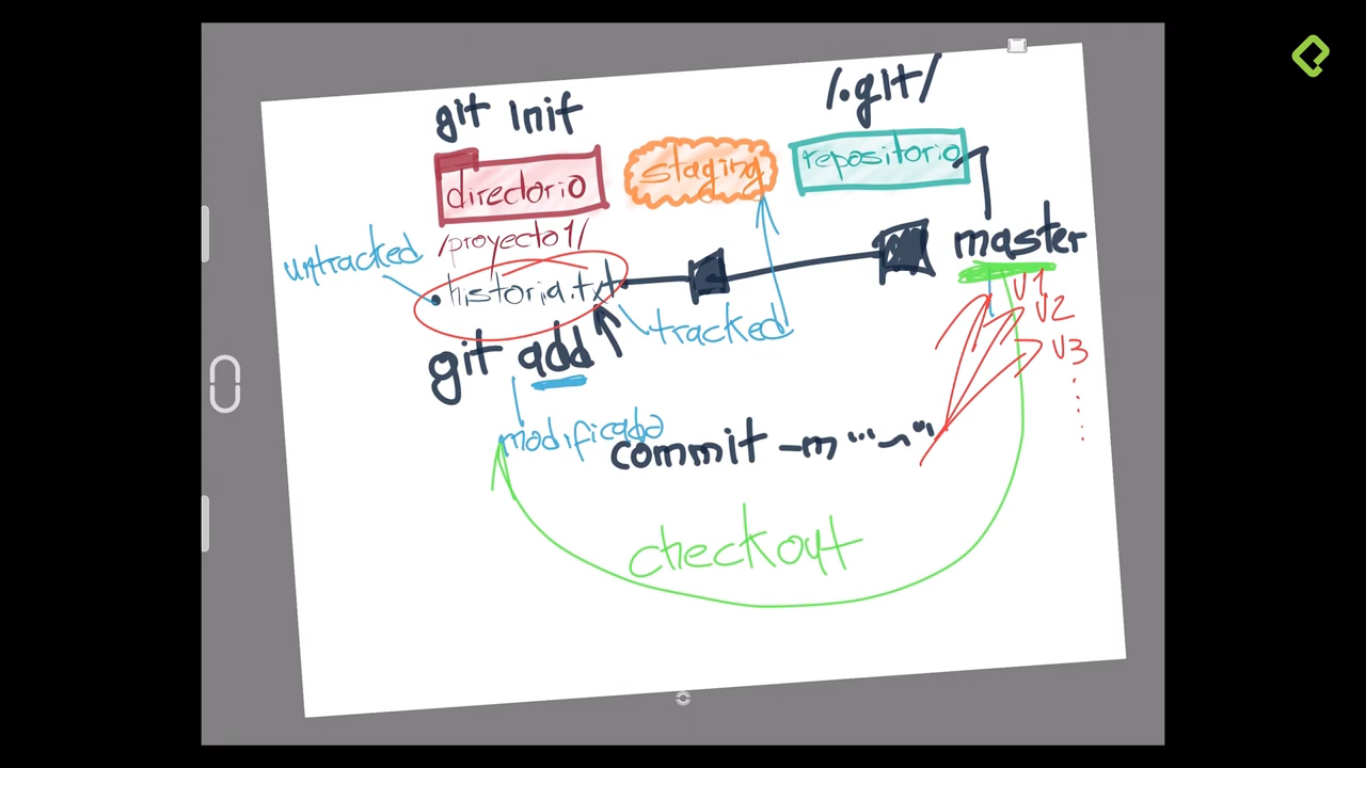 git init
/.git/
directorio
staging
repositorio
/proyecto1/
master
untracked
historia.txt
V1
V2
V3
tracked
git add
modificado
commit -m "~"
checkout